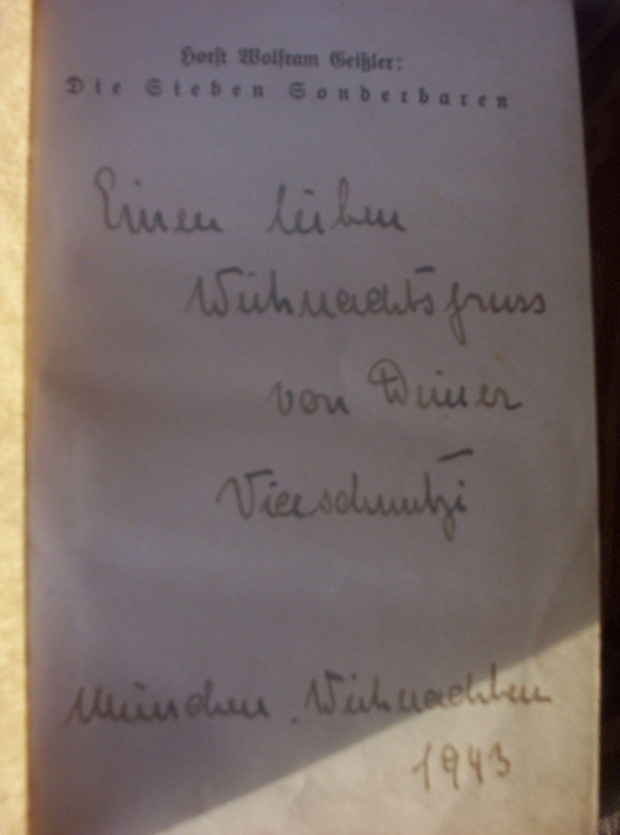 Horst Wolfram Geißler:
Die Sieben Sonderbaren
Einen lieben
Weihnachtsgruss
von Deiner
München. Weihnachten
1943